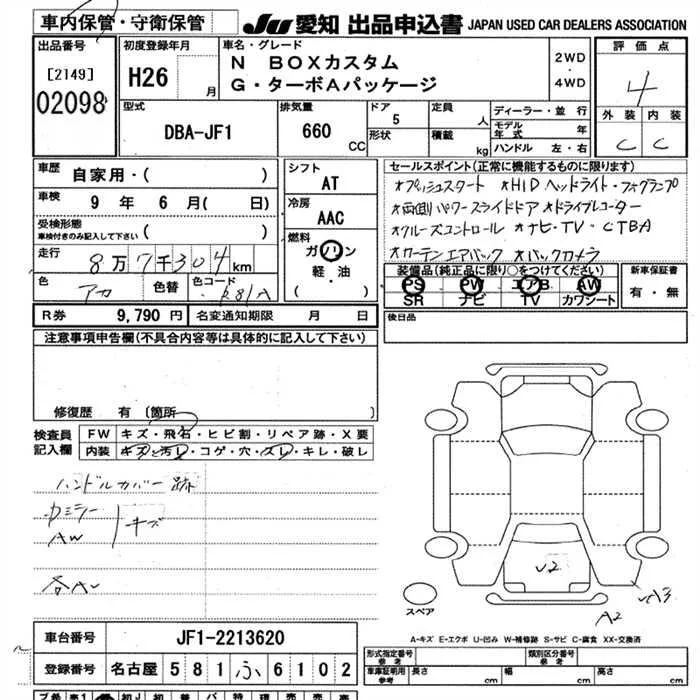 車内保管・守衛保管
JU 愛知 出品申込書 JAPAN USED CAR DEALERS ASSOCIATION
出品番号
[2149]
02098
初度登録年月
H26 月
車名・グレード
N BOXカスタム
G・ターボAパッケージ
2WD
・
4WD
評価点
4
外装 内装
C C
型式
DBA-JF1
排気量
660 CC
ドア
5
形状
定員
人
積載
kg
ディーラー・並 行
モデル年式 年
ハンドル 左・右
車歴
自家用・( )
車検
9 年 6 月( 日)
受検形態
車検付きのみ記入して下さい ( )
走行
8万7千304km
色
アカ
色替
色コード
R81A
シフト
AT
冷房
AAC
燃料
ガソリン
軽・油
( )
セールスポイント(正常に機能するものに限ります)
*プッシュスタート *HIDヘッドライト・フォグランプ
*両側パワースライドドア *ドライブレコーダー
*クルーズコントロール *ナビ・TV・CTBA
*カーテンエアバック *バックカメラ
装備品(純正品に限り○をつけてください)
PS PW エアB AW
SR ナビ TV カワシート
新車保証書
有・無
R券 9,790 円 名変通知期限 月 日
後日品
注意事項申告欄(不具合内容等は具体的に記入して下さい)
修復歴 有 (箇所 )
検査員記入欄
FW キズ・飛石・ヒビ割・リペア跡・X要
内装 キズと汚レ・コゲ・穴・スレ・キレ・破レ
ハンドルカバー跡
カミラー
AW
キズ
各A
U2
A3
A2
スペア
A-キズ E-エクボ U-凹み W-補修跡 S-サビ C-腐食 XX-交換済
車台番号 JF1-2213620
登録番号 名古屋 581 ふ 6102
形式指定番号
参考
類別区分番号
参考
車庫証明用
参考
長さ cm 幅 cm 高さ cm